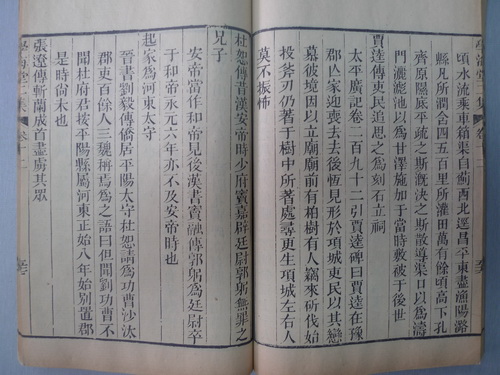 頃水流乘車箱渠自薊西北逕昌平東盡漁陽潞
縣凡所潤含四五百里所灌田萬有餘頃高下孔
齊原隰底平疏之斯溉決之斯散導渠口以為濤
門灑滮池以為甘澤施加于當時敷被于後世
賈逵傳吏民追思之為刻石立祠
太平廣記卷二百九十二引賈逵碑曰賈逵在豫
郡亾家迎喪去去後恆見形於項城吏民以其戀
慕彼境因以立廟廟前有柏樹有人竊來斫伐始
投斧刃仍著于樹中所著處尋更生項城左右人
莫不振怖
杜恕傳昔漢安帝時少府竇嘉辟廷尉郭躬無罪之
兄子
安帝當作和帝見後漢書竇融傳郭躬為廷尉卒
于和帝永元六年亦不及安帝時也
起家為河東太守
晉書劉毅傳僑居平陽太守杜恕請為功曹沙汰
郡吏百餘人三魏稱焉為之語曰但聞劉功曹不
聞杜府君按平陽縣屬河東正始八年始別置郡
是時尚未也
張遼傳斬蘭成首盡虜其眾